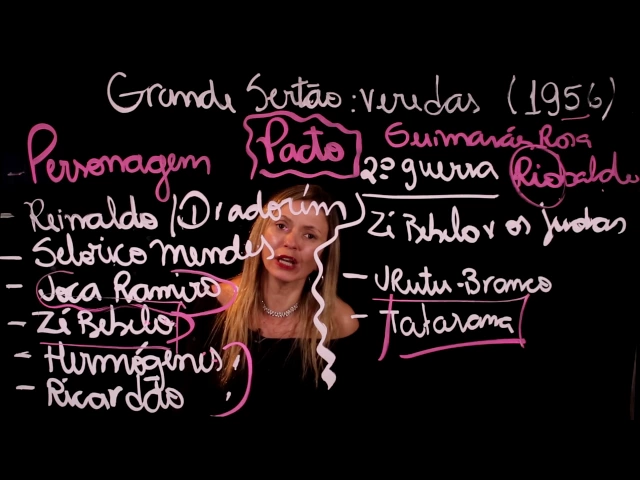 Grande Sertão: veredas (1956)
Guimarães Rosa
- Personagem
Pacto
2ª guerra
Riobaldo
- Reinaldo / (Diadorim)
Zé Bebelo x os judas
- Selorico Mendes
- Joca Ramiro
- Urutu-Branco
- Zé Bebelo
- Tatarana
- Hermógenes
- Ricardão